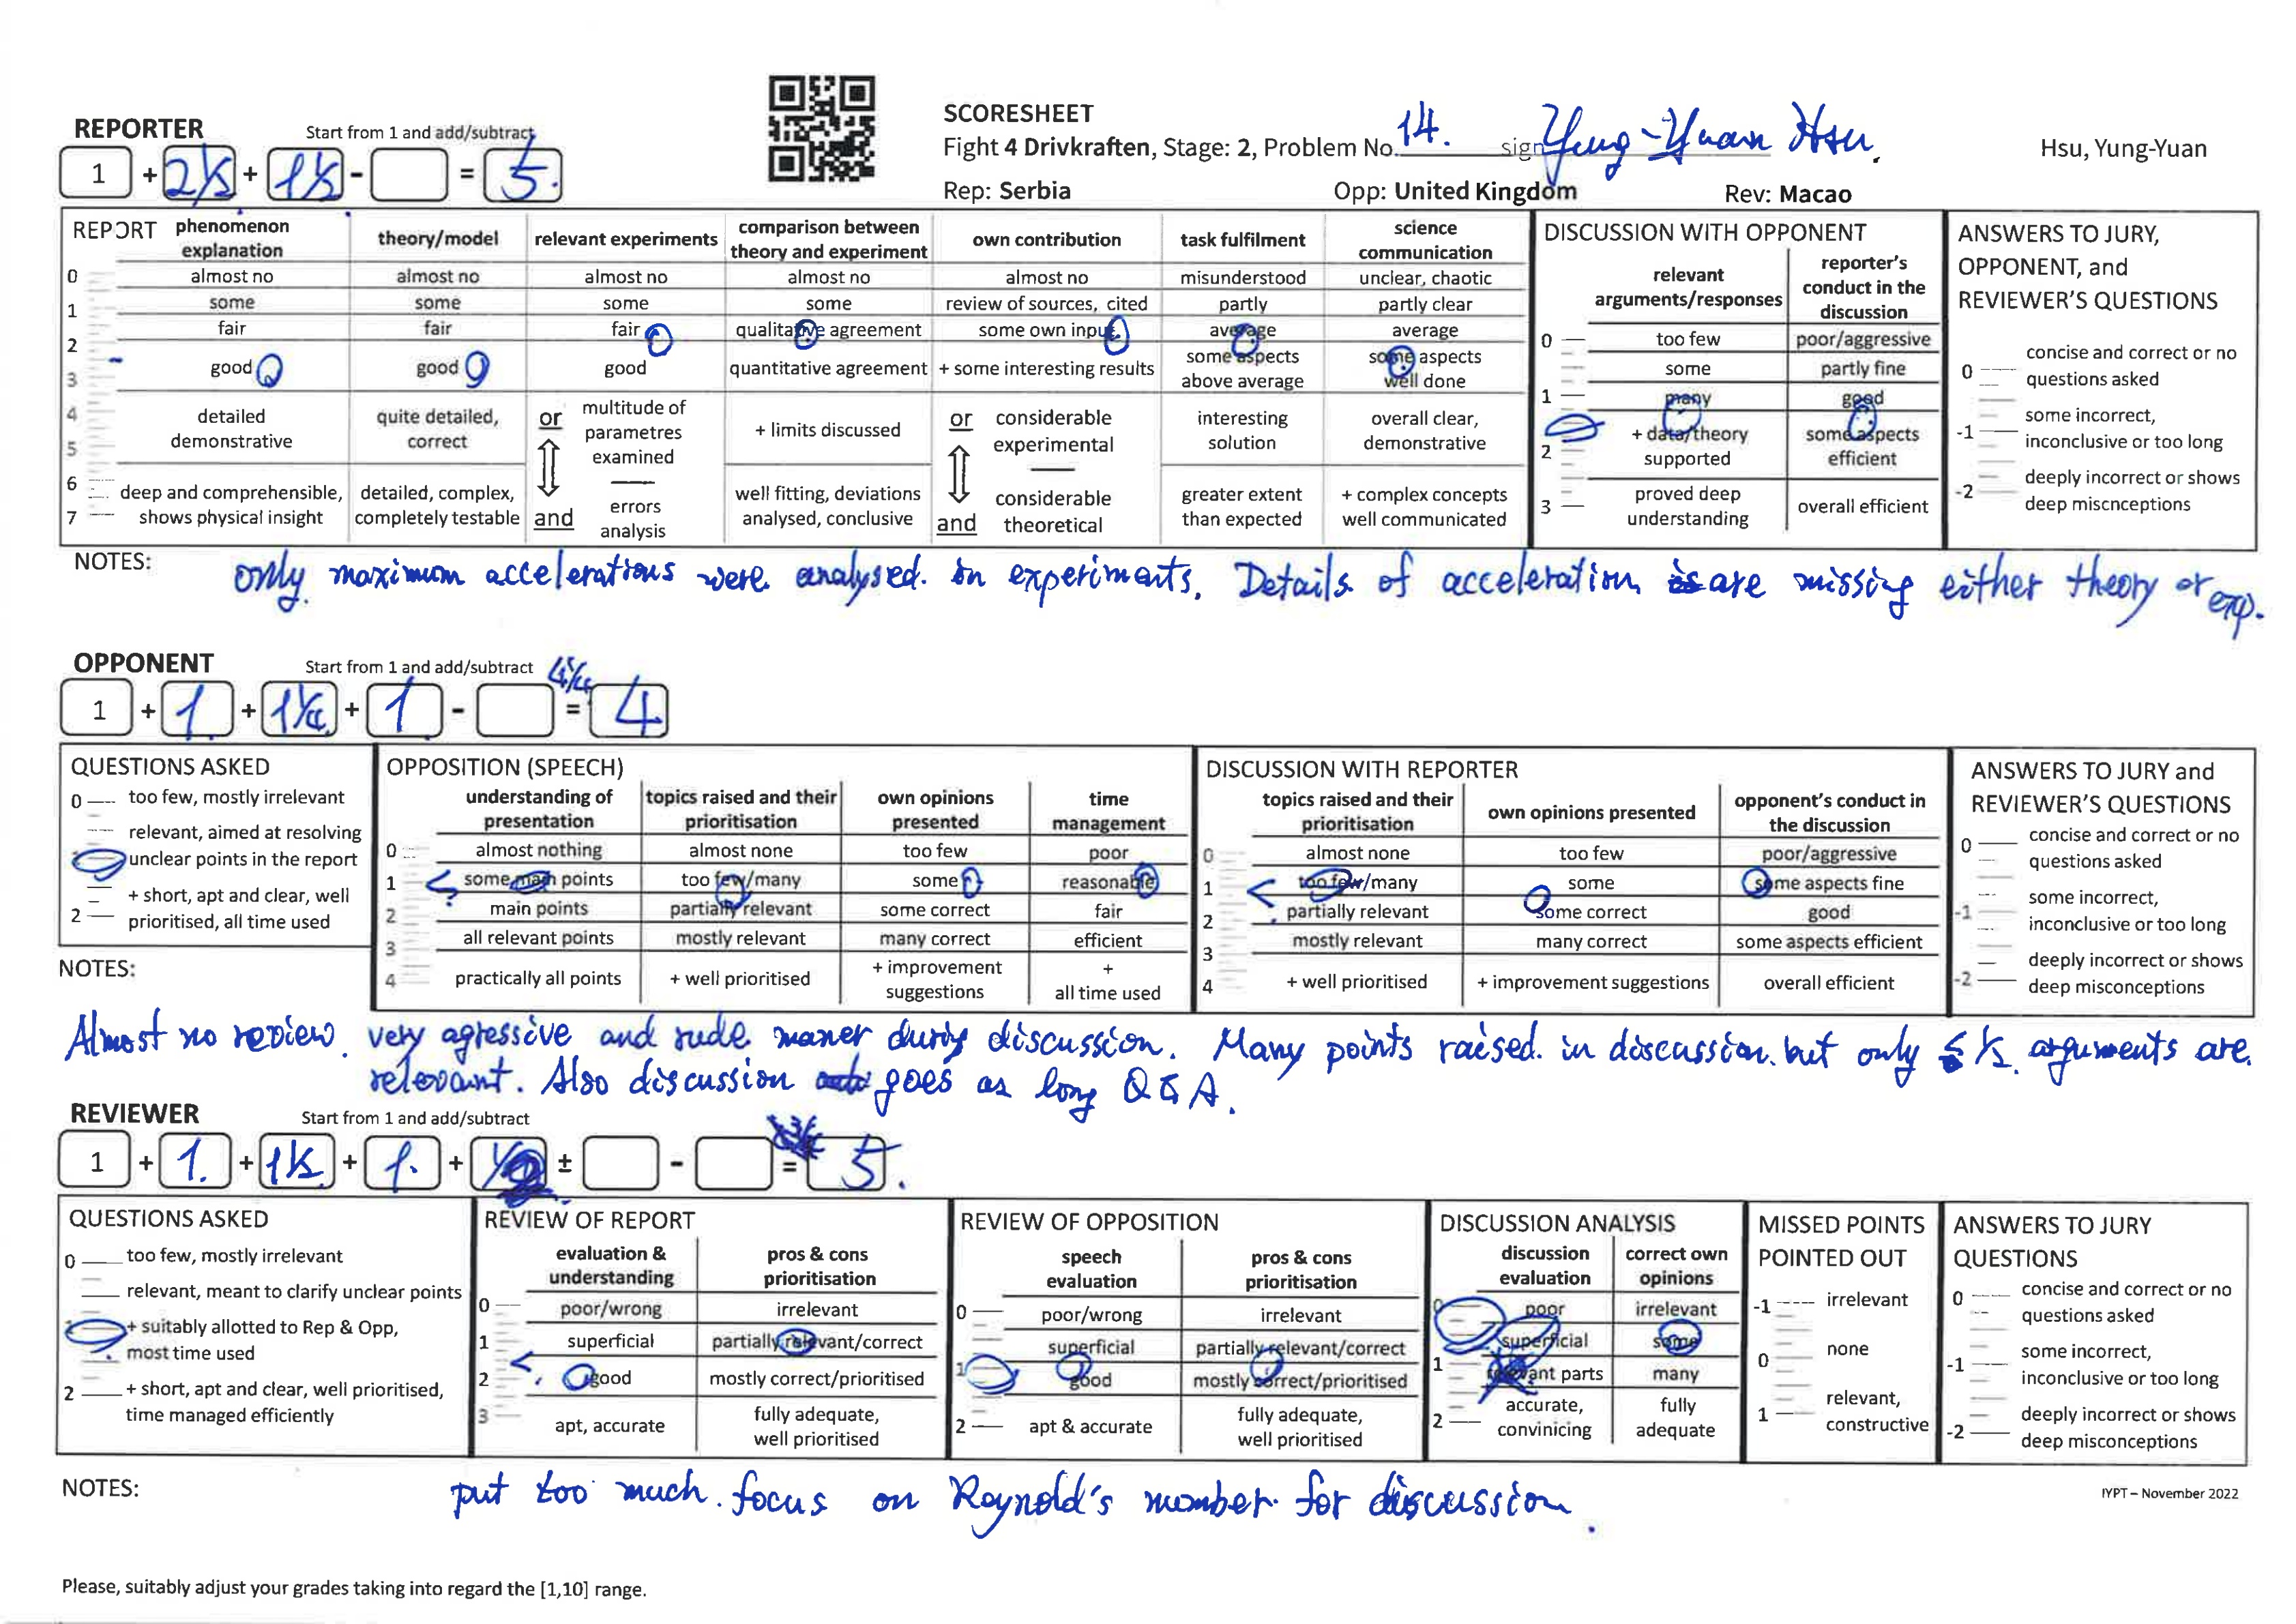 REPORTER Start from 1 and add/subtract
1 + 2½ + 1½ - = 5.
SCORESHEET
Fight 4 Drivkraften, Stage: 2, Problem No. 14. sign Yung-Yuan Hsu. Hsu, Yung-Yuan
Rep: Serbia Opp: United Kingdom Rev: Macao
REPORT phenomenon explanation theory/model relevant experiments comparison between theory and experiment own contribution task fulfilment science communication
0 almost no almost no almost no almost no almost no misunderstood unclear, chaotic
1 some some some some review of sources, cited partly partly clear
2 fair fair fair qualitative agreement some own input average average
3 good good good quantitative agreement + some interesting results some aspects above average some aspects well done
4 5 detailed demonstrative quite detailed, correct or multitude of parametres examined + limits discussed or considerable experimental interesting solution overall clear, demonstrative
6 7 deep and comprehensible, shows physical insight detailed, complex, completely testable and errors analysis well fitting, deviations analysed, conclusive and considerable theoretical greater extent than expected + complex concepts well communicated
DISCUSSION WITH OPPONENT
relevant arguments/responses reporter's conduct in the discussion
0 too few poor/aggressive
some partly fine
1 many good
2 + data/theory supported some aspects efficient
3 proved deep understanding overall efficient
ANSWERS TO JURY, OPPONENT, and REVIEWER'S QUESTIONS
0 concise and correct or no questions asked
-1 some incorrect, inconclusive or too long
-2 deeply incorrect or shows deep miscnceptions
NOTES: only maximum accelerations were analysed in experiments. Details of acceleration are missing either theory or exp.
OPPONENT Start from 1 and add/subtract
1 + 1 + 1 + - = 4
QUESTIONS ASKED
0 too few, mostly irrelevant
relevant, aimed at resolving
unclear points in the report
+ short, apt and clear, well
2 prioritised, all time used
OPPOSITION (SPEECH)
understanding of presentation topics raised and their prioritisation own opinions presented time management
0 almost nothing almost none too few poor
1 some main points too few/many some reasonable
2 main points partially relevant some correct fair
3 all relevant points mostly relevant many correct efficient
4 practically all points + well prioritised + improvement suggestions + all time used
DISCUSSION WITH REPORTER
topics raised and their prioritisation own opinions presented opponent's conduct in the discussion
0 almost none too few poor/aggressive
1 too few/many some some aspects fine
2 partially relevant some correct good
3 mostly relevant many correct some aspects efficient
4 + well prioritised + improvement suggestions overall efficient
ANSWERS TO JURY and REVIEWER'S QUESTIONS
0 concise and correct or no questions asked
-1 some incorrect, inconclusive or too long
-2 deeply incorrect or shows deep misconceptions
NOTES:
Almost no review. very agressive and rude maner during discussion. Many points raised in discussion but only ½ arguments are
relevant. Also discussion goes as long Q & A.
REVIEWER Start from 1 and add/subtract
1 + 1. + 1½ + 1. + ± - = 5.
QUESTIONS ASKED
0 too few, mostly irrelevant
relevant, meant to clarify unclear points
+ suitably allotted to Rep & Opp,
most time used
2 + short, apt and clear, well prioritised,
time managed efficiently
REVIEW OF REPORT
evaluation & understanding pros & cons prioritisation
0 poor/wrong irrelevant
1 superficial partially relevant/correct
2 good mostly correct/prioritised
3 apt, accurate fully adequate, well prioritised
REVIEW OF OPPOSITION
speech evaluation pros & cons prioritisation
0 poor/wrong irrelevant
superficial partially relevant/correct
1 good mostly correct/prioritised
2 apt & accurate fully adequate, well prioritised
DISCUSSION ANALYSIS
discussion evaluation correct own opinions
0 poor irrelevant
superficial some
1 relevant parts many
2 accurate, convinicing fully adequate
MISSED POINTS POINTED OUT
-1 irrelevant
0 none
1 relevant, constructive
ANSWERS TO JURY QUESTIONS
0 concise and correct or no questions asked
-1 some incorrect, inconclusive or too long
-2 deeply incorrect or shows deep misconceptions
NOTES: put too much focus on Reynold's number for discussion.
IYPT – November 2022
Please, suitably adjust your grades taking into regard the [1,10] range.